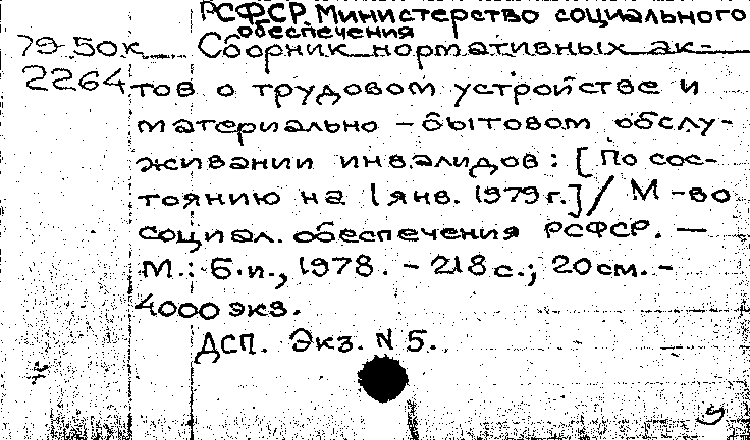 РСФСР. Министерство социального
обеспечения
79-50к Сборник нормативных ак-
2264 тов о трудовом устройстве и
материально - бытовом обслу-
живании инвалидов: [По сос-
тоянию на 1 янв. 1979 г.] / М-во
социал. обеспечения РСФСР. —
М.: Б.и., 1978. - 218 с.; 20 см. -
4000 экз.
ДСП. Экз. N 5.